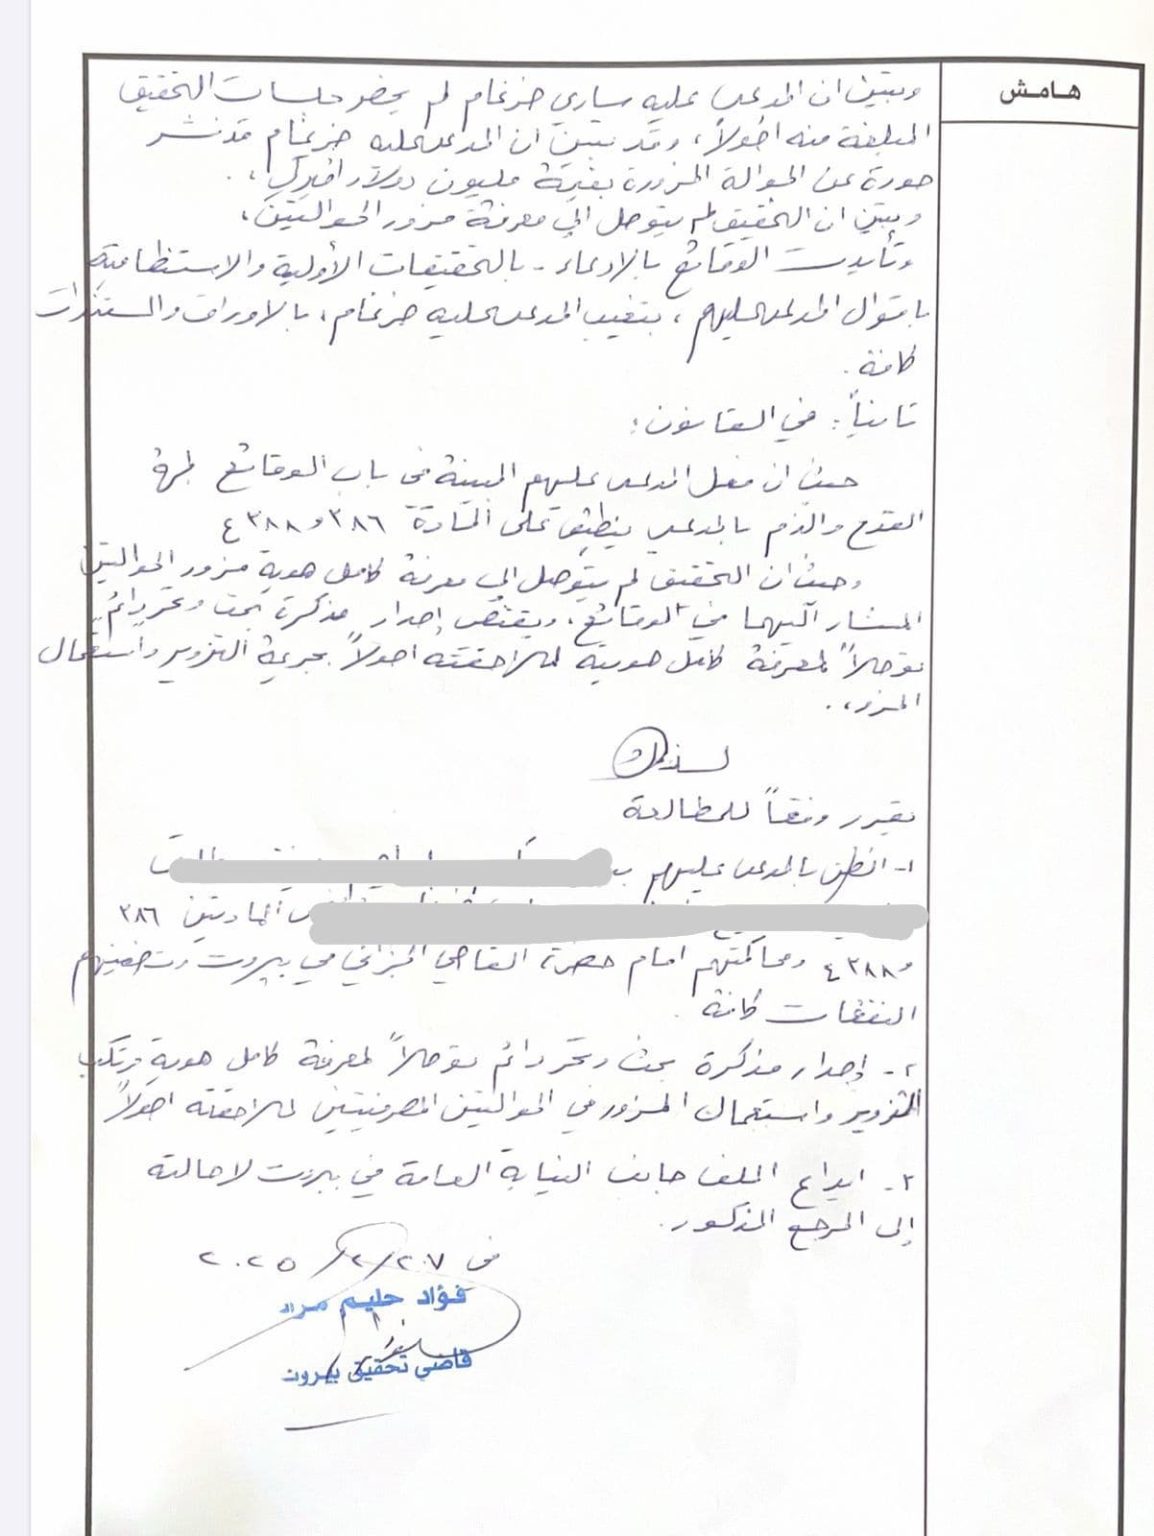 هامش
وتبين ان المدعى عليه ساري ضرغام لم يحضر جلسات التحقيق
المبلغة منه اصولاً، وقد تبين ان المدعى عليه ضرغام قد نشر
صورة عن الحوالة المزورة بقيمة مليون دولار اميركي،.
وتبين ان التحقيق لم يتوصل الى معرفة مزور الحوالتين،
وتأيدت الوقائع بالادعاء، بالتحقيقات الأولية والاستنطاقية
باقوال المدعى عليهم، بتغيب المدعى عليه ضرغام، بالاوراق والمستندات
كافة.
ثانياً: في القانون:
حيث ان فعل المدعى عليهم المبينة في باب الوقائع لجهة
القدح والذم بالمدعي ينطبق على المادة ٣٨٦ و ٣٨٨ ع
وحيث ان التحقيق لم يتوصل الى معرفة كامل هوية مزور الحوالتين
المشار اليهما في الوقائع، ويقتضي إصدار مذكرة بحث وتحر دائم
توصلاً لمعرفة كامل هويته لملاحقته اصولاً بجريمة التزوير واستعمال
المزور،.
لذلك
نقرر وفقاً للمطالعة
١- الظن بالمدعى عليهم
المادتين ٣٨٦
و ٣٨٨ ع ومحاكمتهم امام حضرة القاضي الجزائي في بيروت وتضمينهم
النفقات كافة.
٢- إصدار مذكرة بحث وتحر دائم توصلاً لمعرفة كامل هوية مرتكب
التزوير واستعمال المزور في الحوالتين المصرفيتين لملاحقته اصولاً
٣- ايداع الملف جانب النيابة العامة في بيروت لاحالته
إلى المرجع المذكور.
في ٢٠٢٥/٢/٢٠٧
فؤاد حليم مراد
قاضي تحقيق بيروت